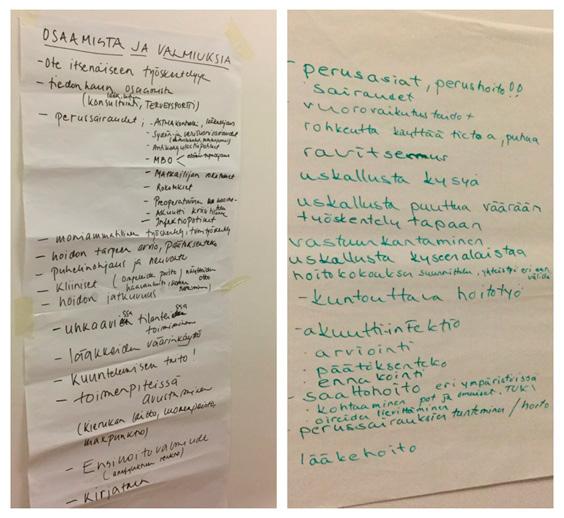 OSAAMISTA JA VALMIUKSIA
- Ote itsenäiseen työskentelyyn
- tiedonhaun osaamista
(konsultointi, TERVEYSPORTTI)
- perussairaudet,
- MBO
- Matkailijan rokotukset
- Rokotukset
- Preoperatiivinen
- Akuutti
- Infektiopotilaat
- moniammatillinen työskentely, tiimityöskentely
- hoidon tarpeen arvio, päätöksenteko
- Puhelinohjaus ja neuvonta
- Kliiniset
- hoidon jatkuvuus
- uhkaavissa tilanteissa
toimiminen
- lääkkeiden väärinkäyttö
- Kuuntelemisen taito!
- toimenpiteissä
avustaminen
(Kierukan laitto, luomenpoisto,
- Ensihoitovalmiudet
- Kirjataan
- perusasiat, perushoito!!
sairaudet
- vuorovaikutustaidot
rohkeutta käyttää tietoa, puhua
ravitsemus
uskallusta kysyä
uskallusta puuttua väärään
työskentely tapaan
vastuunkantaminen
uskallusta kyseenalaistaa
hoitokokouksen suunnittelu, yhteistyö eri
- kuntouttava hoitotyö
- akuutti-infektio
· arviointi
· päätöksenteko
ennakointi
- saattohoito eri ympäristöissä
· kohtaaminen pot ja omaiset. TUKI
· oireiden lievittäminen
- perussairauksien tunteminen / hoito
lääkehoito